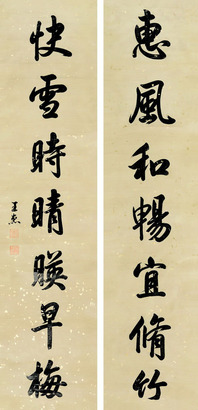 惠風和暢宜脩竹
快雪時晴暎早梅
王杰